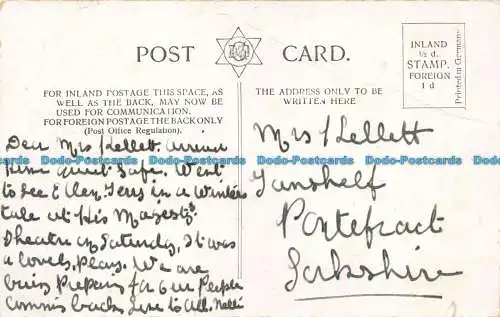 POST CARD.
INLAND
½ d.
STAMP.
FOREIGN
1 d
Printed in Germany
FOR INLAND POSTAGE THIS SPACE, AS
WELL AS THE BACK, MAY NOW BE
USED FOR COMMUNICATION.
FOR FOREIGN POSTAGE THE BACK ONLY
(Post Office Regulation).
THE ADDRESS ONLY TO BE
WRITTEN HERE
Dear Mrs Kellett. arrived
here quit safe. Went
to see Ellen Terry in a Winters
tale at His Majestys
Theatre on Saturday, It was
a lovely, play. We are
busy prepairs for our People
coming back Love to All. Nelli
Mrs Kellett
Tanshelf
Pontefract
Yorkshire
Bartko-Postcards